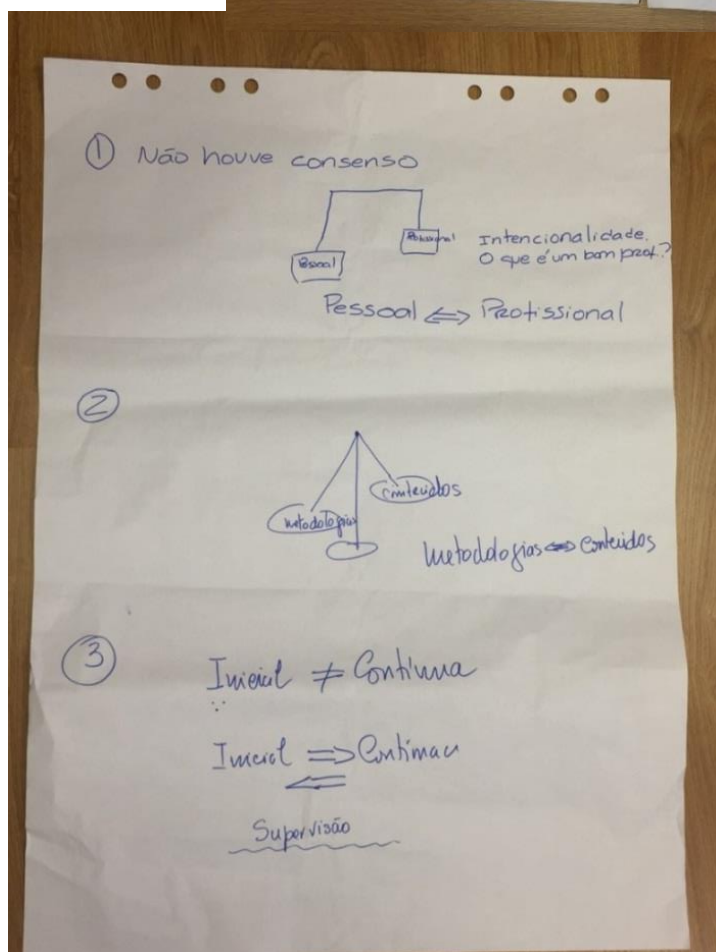 ① Não houve consenso
Pessoal
Intencionalidade.
O que é um bom prof.?
Pessoal ⇔ Profissional
②
conteúdos
metodologias
Metodologias ⇔ Conteúdos
③
Inicial ≠ Contínua
Inicial ⇒ Contínua
⇐
Supervisão